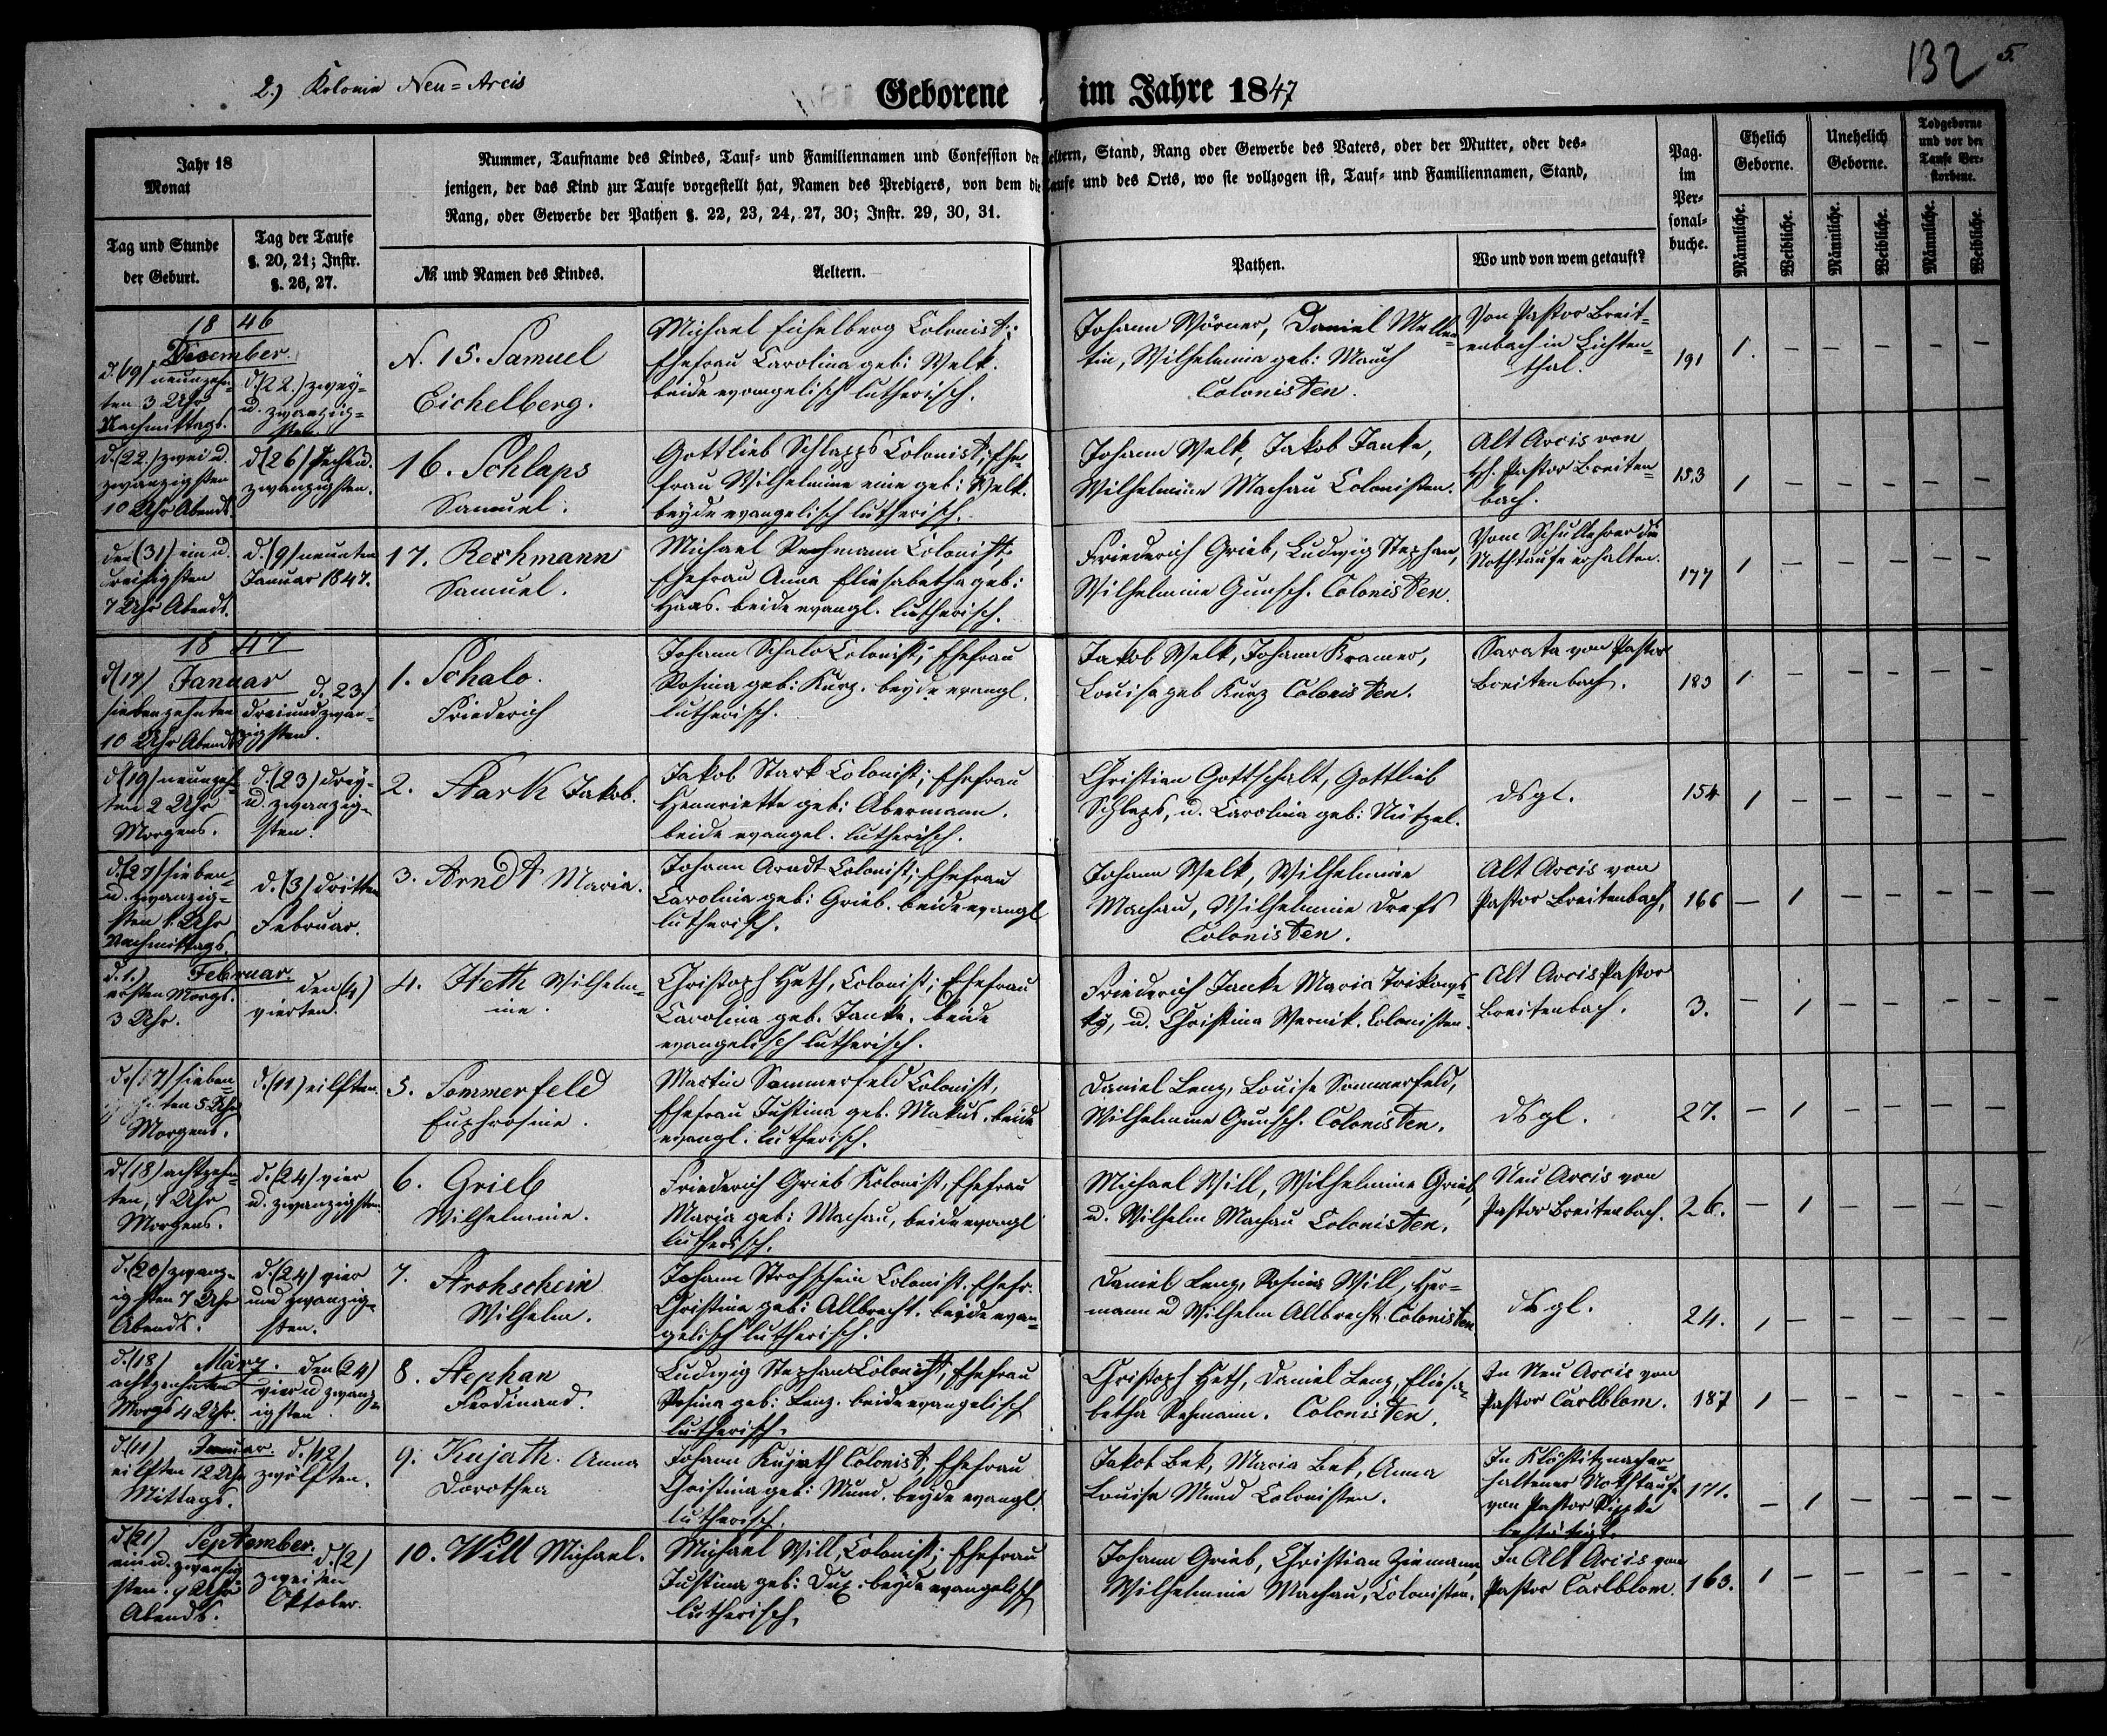 132 5.
2.) Kolonie Neu=Arcis
Geborene im Jahre 1847
Jahr 18
Monat
Tag und Stunde
der Geburt.
Tag der Taufe
§. 20, 21; Instr.
§. 26, 27.
Nummer, Taufname des Kindes, Tauf- und Familiennamen und Confession der Aeltern, Stand, Rang oder Gewerbe des Vaters, oder der Mutter, oder des-
jenigen, der das Kind zur Taufe vorgestellt hat, Namen des Predigers, von dem die Taufe und des Orts, wo sie vollzogen ist, Tauf- und Familiennamen, Stand,
Rang, oder Gewerbe der Pathen §. 22, 23, 24, 27, 30; Instr. 29, 30, 31.
№ und Namen des Kindes.
Aeltern.
Pathen.
Wo und von wem getauft?
Pag.
im
Per-
sonal-
buche.
Ehelich
Geborne.
Unehelich
Geborne.
Todgeborne
und vor der
Taufe Ver-
storbene.
Männliche.
Weibliche.
Männliche.
Weibliche.
Männliche.
Weibliche.
18 46
December.
d. (19) neunzehn-
ten 3 Uhr
Nachmittags.
d. (22.) zwey-
u. zwanzig-
sten.
N. 15. Samuel
Eichelberg.
Michael Eichelberg Colonist;
Ehefrau Carolina geb: Welk.
beide evangelisch lutherisch.
Johann Wörner, Daniel Mellen-
tin, Wilhelmina geb: Mauch
Colonisten.
Von Pastor Breit-
enbach in Lichten-
thal.
191 1. – – – – –
d. (22.) zwei u.
zwanzigsten
10 Uhr Abends.
d. (26) sechsu.
zwanzigsten.
16. Schlaps
Samuel.
Gottlieb Schlapps Colonist; Ehe-
frau Wilhelmine eine geb: Welk.
beyde evangelisch lutherisch.
Johann Welk, Jakob Janke,
Wilhelmine Machau Colonisten.
Alt Arcis von
H. Pastor Breiten-
bach.
153 1 – – – – –
den (31) ein u.
dreisigsten
7 Uhr Abends.
d. (9) neunten
Januar 1847.
17. Rechmann
Samuel.
Michael Rechmann Colonist;
Ehefrau Anna Eliesabetha geb:
Haas. beide evangl. lutherisch.
Friederich Grieb, Ludwig Stephan,
Wilhelmine Gunsch. Colonisten.
Vom Schullehrer die
Nothtaufe erhalten.
177 1 – – – – –
18 47
Januar
d. (17)
siebenzehnten
10 Uhr Abends
d. 23.)
dreiundzwan-
zigsten.
1. Schalo.
Friederich
Johann Schalo Colonist; Ehefrau
Rosina geb: Kurz. beyde evangl.
lutherisch.
Jakob Welk, Johann Kramer,
Louisa geb Kurz Colonisten.
Sarata von Pastor
Breitenbach.
183 1. – – – – –
d. (19) neunzehn-
ten 2 Uhr
Morgens.
d. (23) drey-
u. zwanzig-
sten.
2. Stark Jakob.
Jakob Stark Colonist; Ehefrau
Hennriette geb: Abermann.
beide evangel. lutherisch.
Christian Gottschalt, Gottlieb
Schlaps, u. Carolina geb: Nützel.
dsgl.
154 1 – – – – –
d. (27) sieben-
u. zwanzig-
sten 1. Uhr
Nachmittags.
d. (3) dritten
Februar.
3. Arndt Maria.
Johann Arndt Colonist; Ehefrau
Carolina geb: Grieb. beide evangl
lutherisch.
Johann Welk, Wilhelmine
Machau, Wilhelmine
Colonisten.
Alt Arcis von
Pastor Breitenbach,
166 – 1 – – – –
Februar.
d. 1.)
ersten Morgs.
3 Uhr.
den (4)
vierten.
4. Heth Wilhelm-
ine.
Christoph Heth, Colonist; Ehefrau
Carolina geb. Janke. beide
evangelisch lutherisch.
Friederich Janke Maria Trikows-
ky, u. Christina Wernik. Colonisten.
Alt Arcis Pastor
Breitenbach.
3. – 1 – – – –
d. (17) sieben-
zehnten 5 Uhr
Morgens.
d. (11) eilften.
5. Sommerfeld
Euphrosine.
Martin Sommerfeld Colonist,
Ehefrau Justina geb. Makus. beide
evangl. lutherisch.
Daniel Lenz, Louise Sommerfeld,
Wilhelmine Gunsch. Colonisten.
dsgl.
27. – 1 – – – –
d. (18) achtzehn-
ten, 1 Uhr
Morgens.
d. (24) vier
u. zwanzigsten.
6. Grieb
Wilhelmine.
Friederich Grieb Kolonist, Ehefrau
Maria geb: Machau, beide evangl
lutherisch.
Michael Will, Wilhelmine Grieb
u. Wilhelm Machau Colonisten.
Neu Arcis von
Pastor Breitenbach.
26. – 1 – – – –
d. (20) zwanz-
igsten 7 Uhr
Abends.
d. (24) vier
und zwanzig-
sten.
7. Strohschein
Wilhelm.
Johann Strohschein Colonist. Ehefr.
Christina geb: Allbrecht. beyde evan-
gelisch lutherisch.
Daniel Lenz, Rosina Will, Her-
mann u Wilhelm Allbrecht. Colonisten
dsgl.
24. 1 – – – – –
März.
d. (18)
achtzehnten
Morgs 4 Uhr.
den (24)
vier u zwanz-
igsten
8. Stephan
Ferdinand.
Ludwig Stephan Colonist, Ehefrau
Rosina geb: Lenz. beide evangelisch
lutherisch.
Christoph Heth, Daniel Lenz, Eliesa-
betha Rehmann. Colonisten.
In Neu Arcis von
Pastor Carlblom.
187 1 – – – – –
Januar.
d. (11)
eilften 12 Uhr
Mittags.
d. (12)
zwölften.
9. Kujath. Anna
Dorothea
Johann Kujath Colonist. Ehefrau
Christina geb: Mund. beyde evangl.
lutherisch.
Jakob Bek, Maria Bek, Anna
Louise Mund Colonisten.
In Klöstitz nach er-
haltener Nothtaufe
von Pastor
bestätigt.
171. – 1 – – – –
September.
d. (21)
ein u. zwanzig
sten. 9 Uhr
Abends.
d. (2)
zweiten
Oktober.
10. Will Michael.
Michael Will, Colonist; Ehefrau
Justina geb: Dux. beyde evangelisch
lutherisch.
Johann Grieb, Christian Ziemann,
Wilhelmine Machau, Colonisten.
In Alt Arcis von
Pastor Carlblom.
163. 1 – – – – –